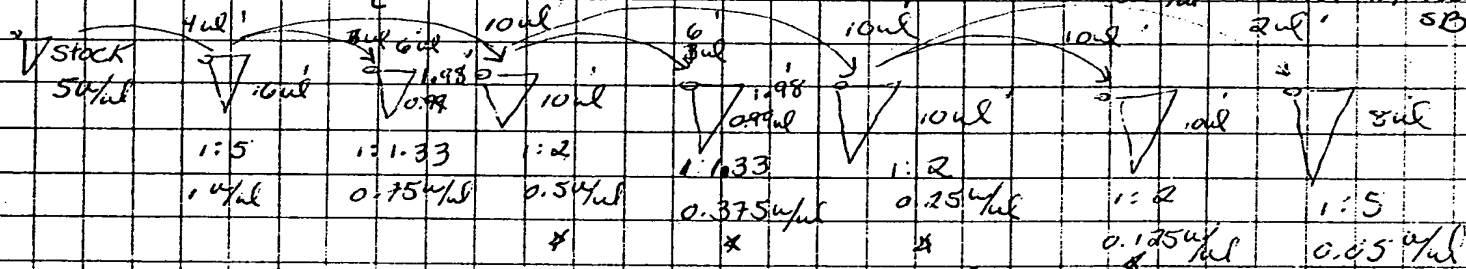 4ul 10ul 6 10ul 10ul 2ul SB
STOCK 6ul 3ul
5u/ul 16ul 1.98 10ul 1.98 10ul 10ul 8ul
0.99 0.99ul
1:5 1:1.33 1:2 1:1.33 1:2 1:2 1:5
1u/ul 0.75u/ul 0.5u/ul 0.375u/ul 0.25u/ul 0.125u/ul 0.05u/ul